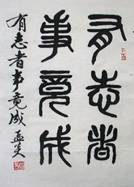 有志者
事竟成
有志者事竟成